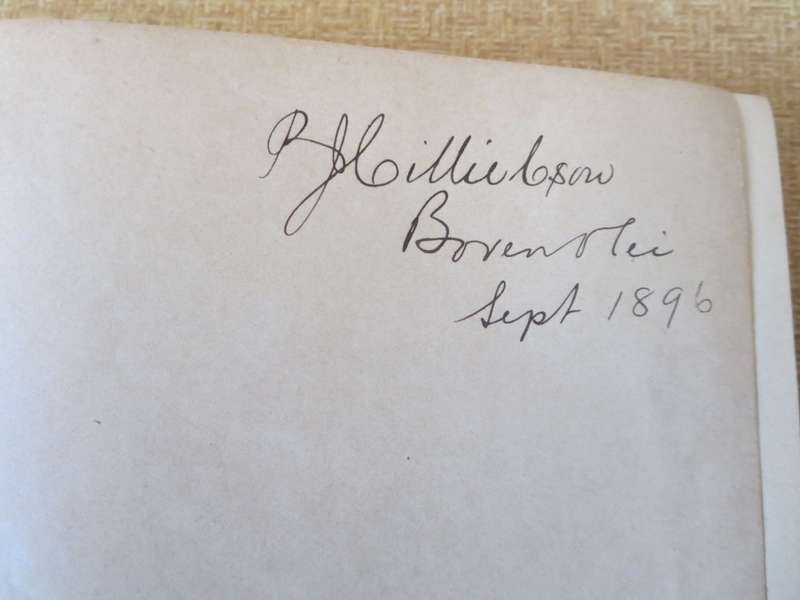 P J Cillie Cson
Boven Vlei
Sept 1896